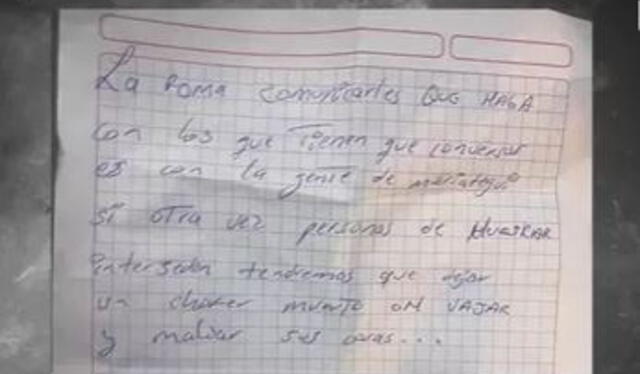 La Roma comunicarles que HAGA
con los que Tienen que conversar
es con la gente de mariategui
si otra vez personas de HUASKAR
interseden tendremos que dejar
un chofer muerto en VAJAR
y matar sus